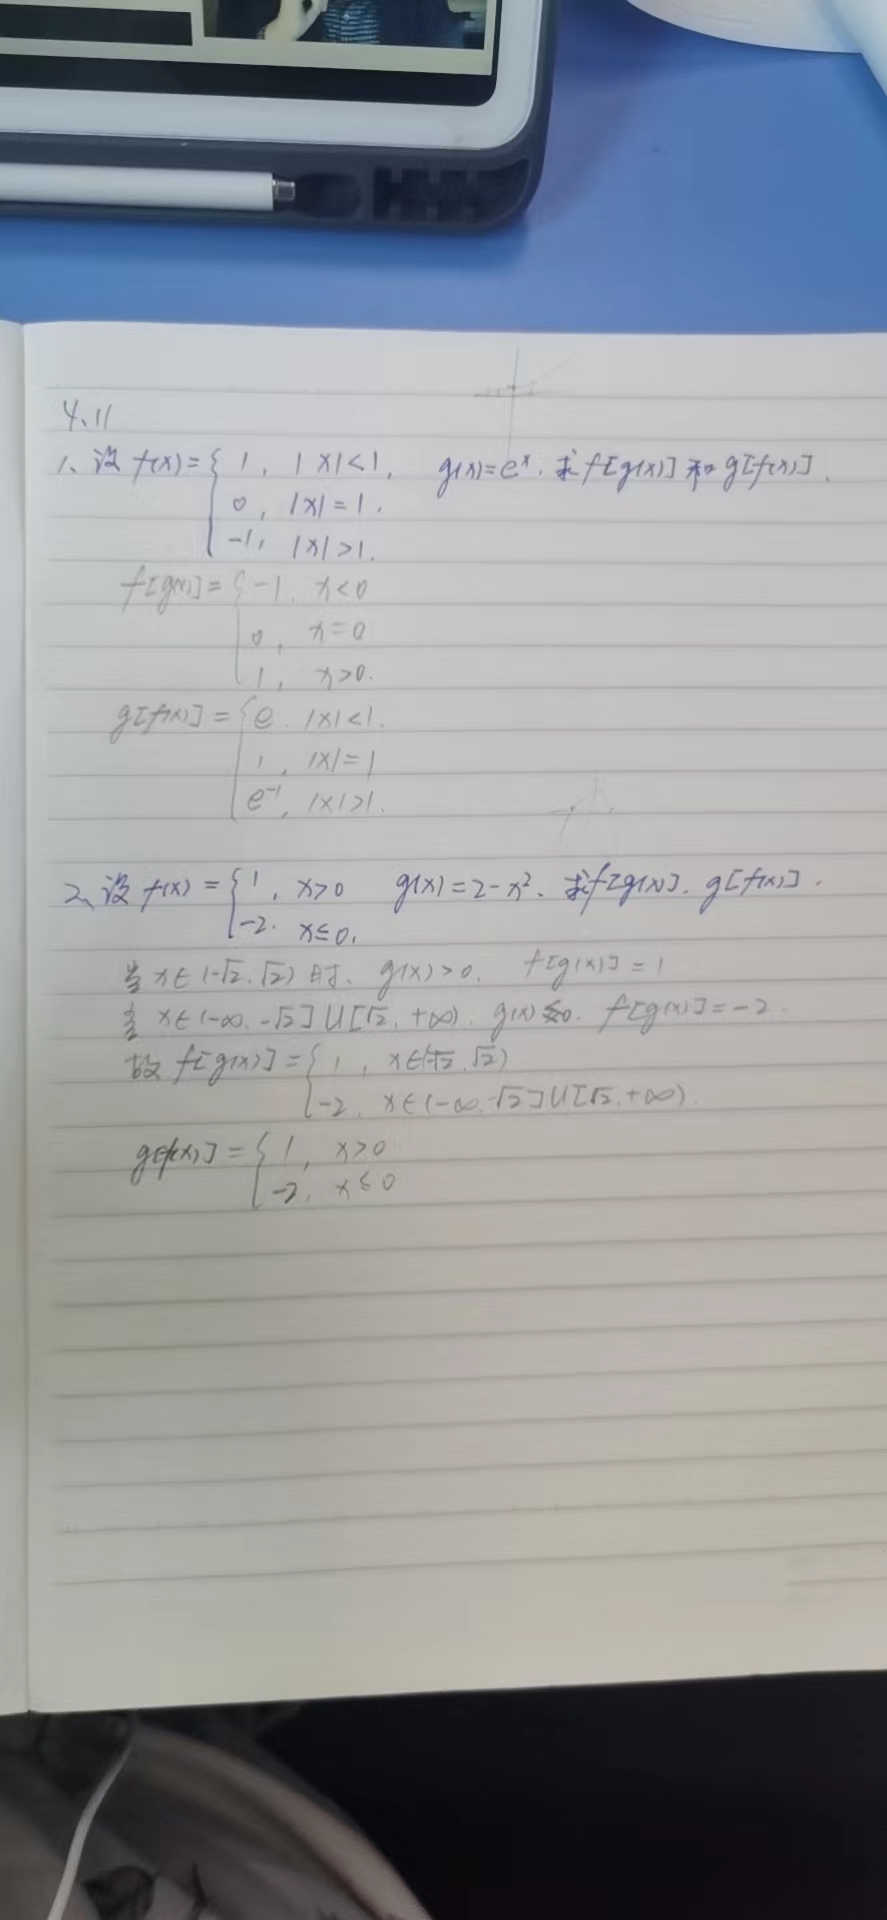 4.11
1、设 f(x)={ 1, |x|<1, g(x)=eˣ. 求f[g(x)]和g[f(x)].
0, |x|=1.
-1, |x|>1.
f[g(x)]={ -1, x<0
0, x=0
1, x>0.
g[f(x)]={ e. |x|<1.
1, |x|=1
e⁻¹, |x|>1.
2、设 f(x)={ 1, x>0 g(x)=2-x². 求f[g(x)]. g[f(x)].
-2. x≤0.
当 x∈(-√2,√2) 时. g(x)>0. f[g(x)]=1
当 x∈(-∞,-√2]∪[√2,+∞). g(x)≤0. f[g(x)]=-2.
故 f[g(x)]={ 1, x∈(-√2,√2)
-2, x∈(-∞,-√2]∪[√2,+∞).
g[f(x)]={ 1, x>0
-2, x≤0